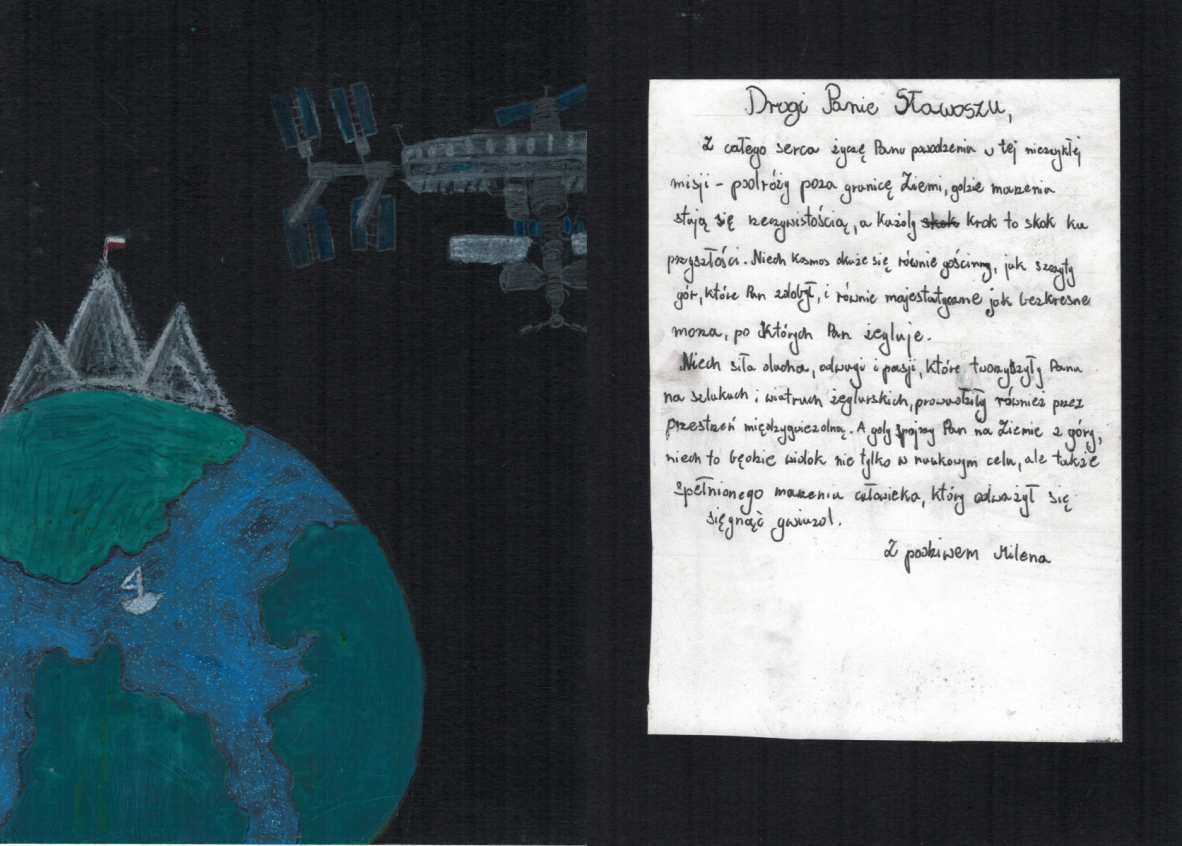 Drogi Panie Sławoszu,
Z całego serca życzę Panu powodzenia w tej niezwykłej
misji – podróży poza granicę Ziemi, gdzie marzenia
stają się rzeczywistością, a każdy ~~skok~~ krok to skok ku
przyszłości. Niech kosmos okaże się równie gościnny, jak szczyty
gór, które Pan zdobył, i równie majestatyczne jak bezkresne
morza, po których Pan żegluje.
Niech siła ducha, odwagi i pasji, które towarzyszyły Panu
na szlakach i wiatrach żeglarskich, prowadziły również przez
przestrzeń międzygwiezdną. A gdy spojrzy Pan na Ziemie z góry,
niech to będzie widok nie tylko w naukowym celu, ale także
spełnionego marzenia człowieka, który odważył się
sięgnąć gwiazd.
Z podziwem Milena